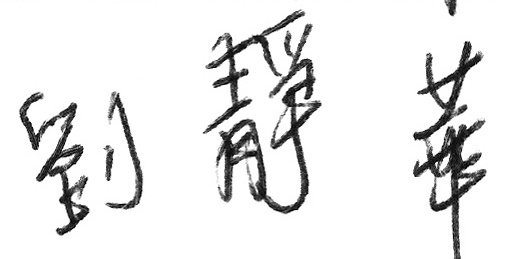 劉靜華